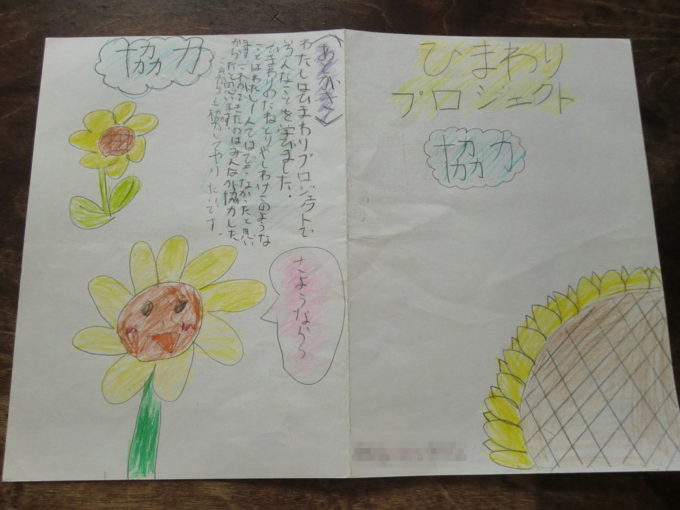 ひまわり
プロジェクト
協力
協力
あとがき
わたしはひまわりプロジェクトで
いろんなことを学びました。
ひまわりのたねとりやしわけこのような
ことはわたし一人ではできなかったと思い
ます。これができたのはみんなが協力した
からだと思います。
これからも協力してやりたいです。
さようなら〜